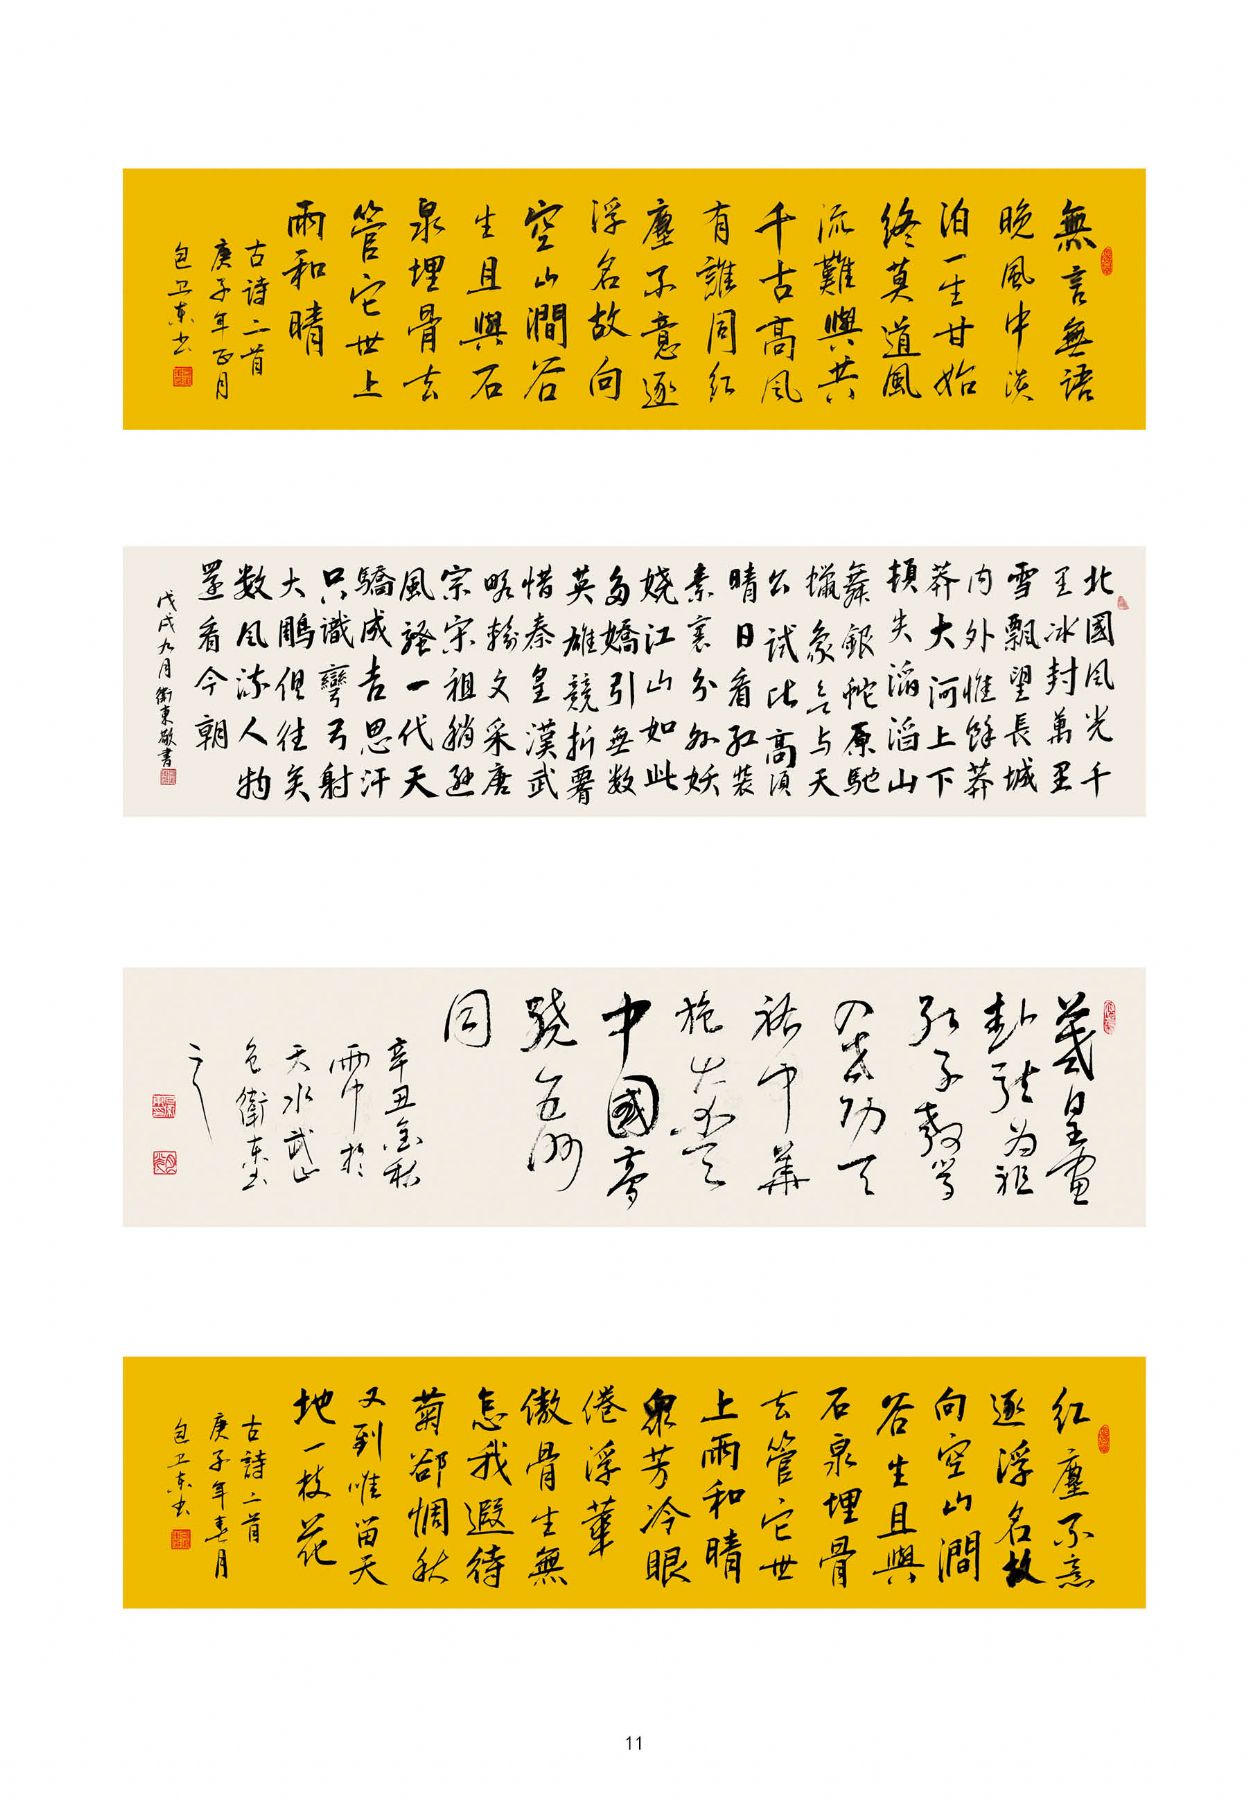 無言無語
晚風中淡
泊一生甘始
終莫道風
流難與共
千古高風
有誰同紅
塵不意逐
浮名故向
空山澗谷
生且與石
泉埋骨去
管它世上
雨和晴
古詩二首
庚子年正月
包卫东书
北國风光千
里冰封萬里
雪飄望長城
内外惟餘莽
莽大河上下
頓失滔滔山
舞銀蛇原馳
蠟象欲与天
公試比高須
晴日看红装
素裹分外妖
娆江山如此
多嬌引無数
英雄競折署
惜秦皇漢武
略輸文采唐
宗宋祖稍遜
風騷一代天
驕成吉思汗
只識彎弓射
大鵰俱往矣
数风流人物
還看今朝
戊戌九月衛東敬書
羲皇畫
卦强为祖
孔子教學
功天
祐中華
施大愛
中國夢
繞五洲
同
辛丑金秋
雨中於
天水武山
包衛東書
之
红塵不意
逐浮名故
向空山澗
谷生且與
石泉埋骨
去管它世
上雨和晴
衆芳冷眼
倦浮華
傲骨生無
怠我遐待
菊郤惆秋
又到唯留天
地一枝花
古詩二首
庚子年春月
包卫东书
11